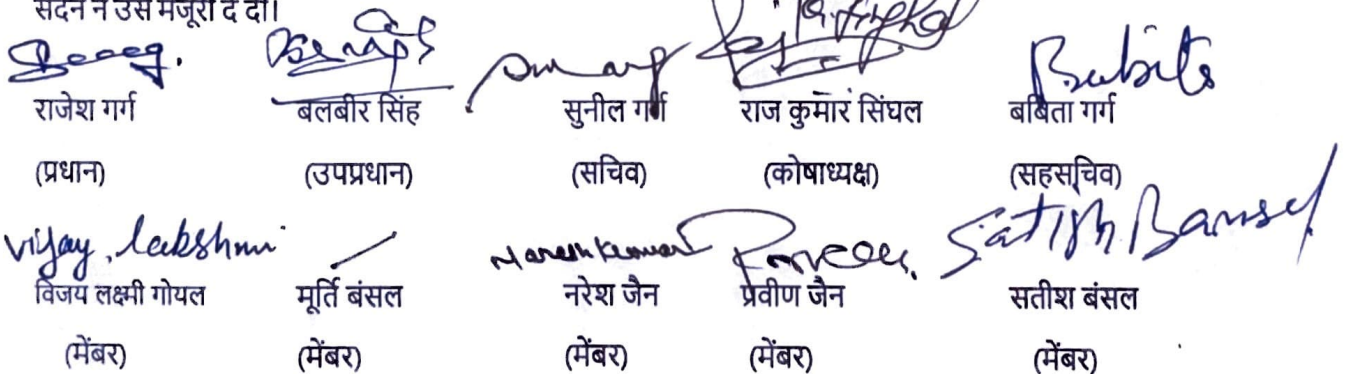 सदन ने उसे मंजूरी दे दी।
राजेश गर्ग बलबीर सिंह सुनील गर्ग राज कुमार सिंघल बबिता गर्ग
(प्रधान) (उपप्रधान) (सचिव) (कोषाध्यक्ष) (सहसचिव)
Vijay. lakshmi Naresh Kumar Satish Bansal
विजय लक्ष्मी गोयल मूर्ति बंसल नरेश जैन प्रवीण जैन सतीश बंसल
(मेंबर) (मेंबर) (मेंबर) (मेंबर) (मेंबर)